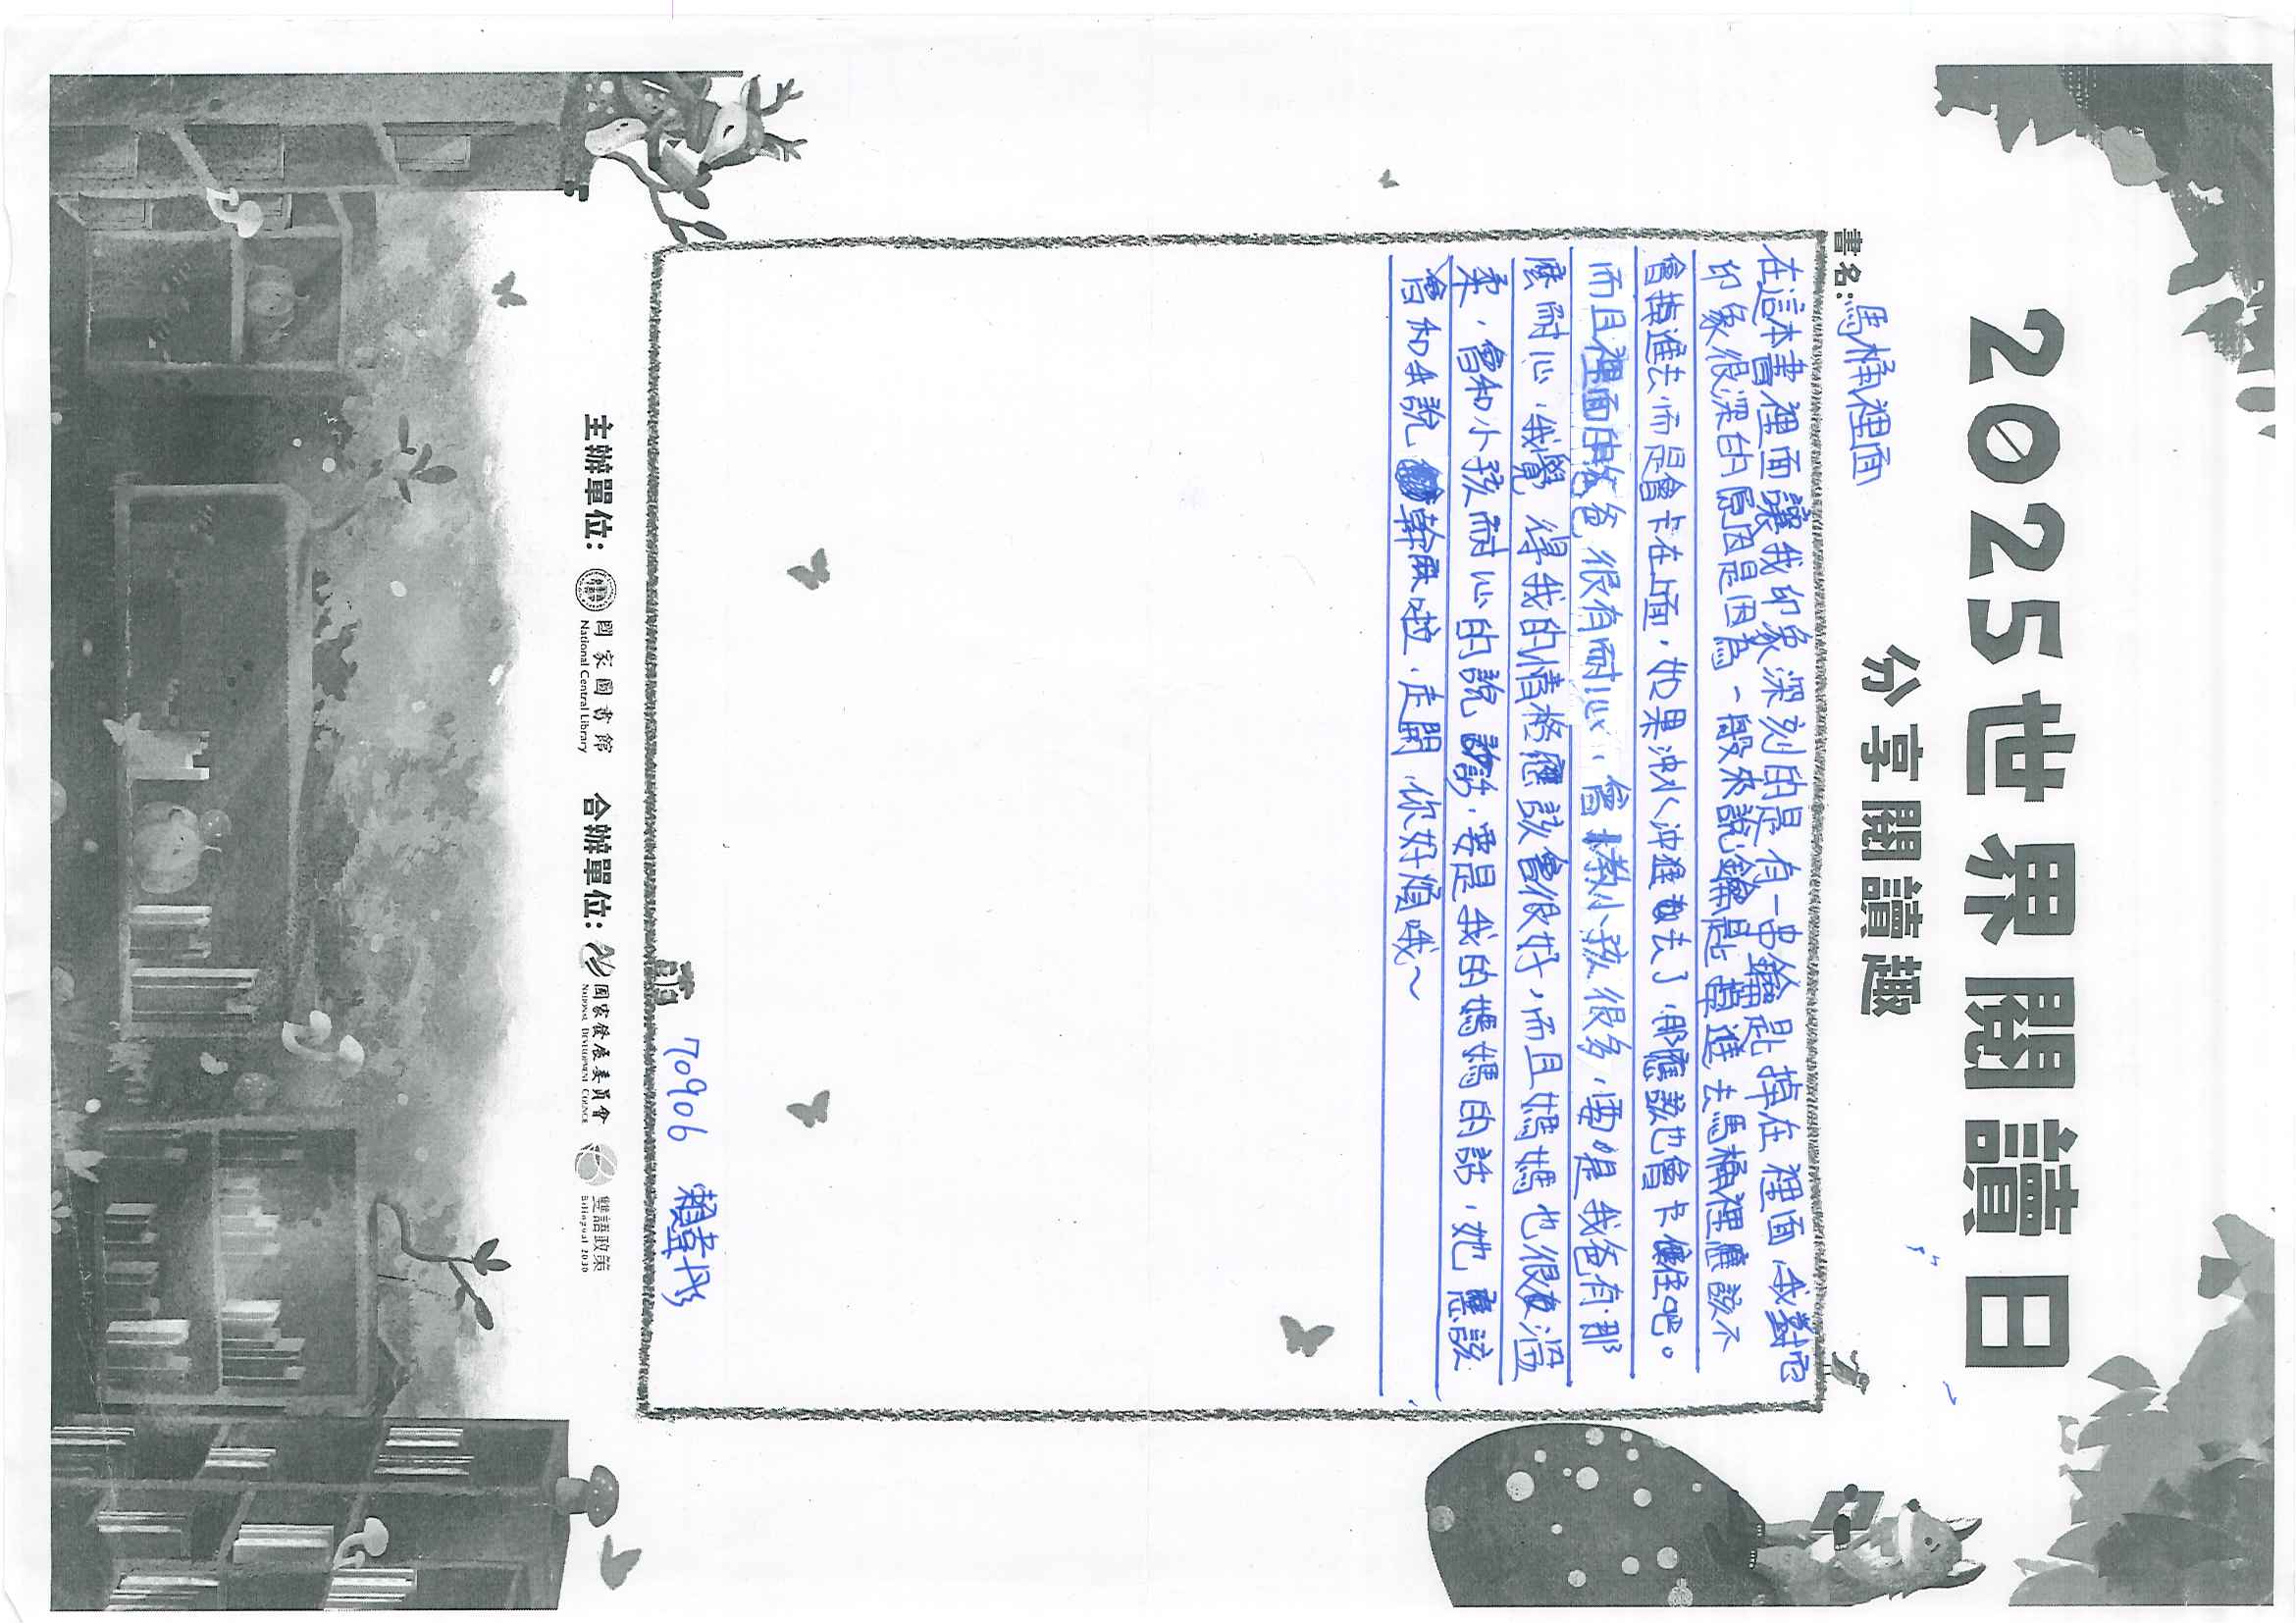 2025世界閱讀日
分享閱讀趣
書名:馬桶裡面
在這本書裡面讓我印象深刻的是有一串鑰匙掉在裡面,我對它
印象很深的原因是因為,一般來說鑰匙掉進去馬桶裡應該不
會掉進去而是會卡在上面,如果沖水沖進去了,那應該也會卡住吧。
而且裡面的爸爸很有耐心,會教小孩很多,要是我爸有那
麼耐心,我覺得我的情格應該會很好,而且媽媽也很溫
柔,會和小孩耐心的說話,要是我的媽媽的話,她應該
會和我說幹麻啦,走開,你好煩哦~
70906 賴
主辦單位: 國家圖書館 National Central Library 合辦單位: 國家發展委員會 National Development Council 雙語政策 Bilingual 2030